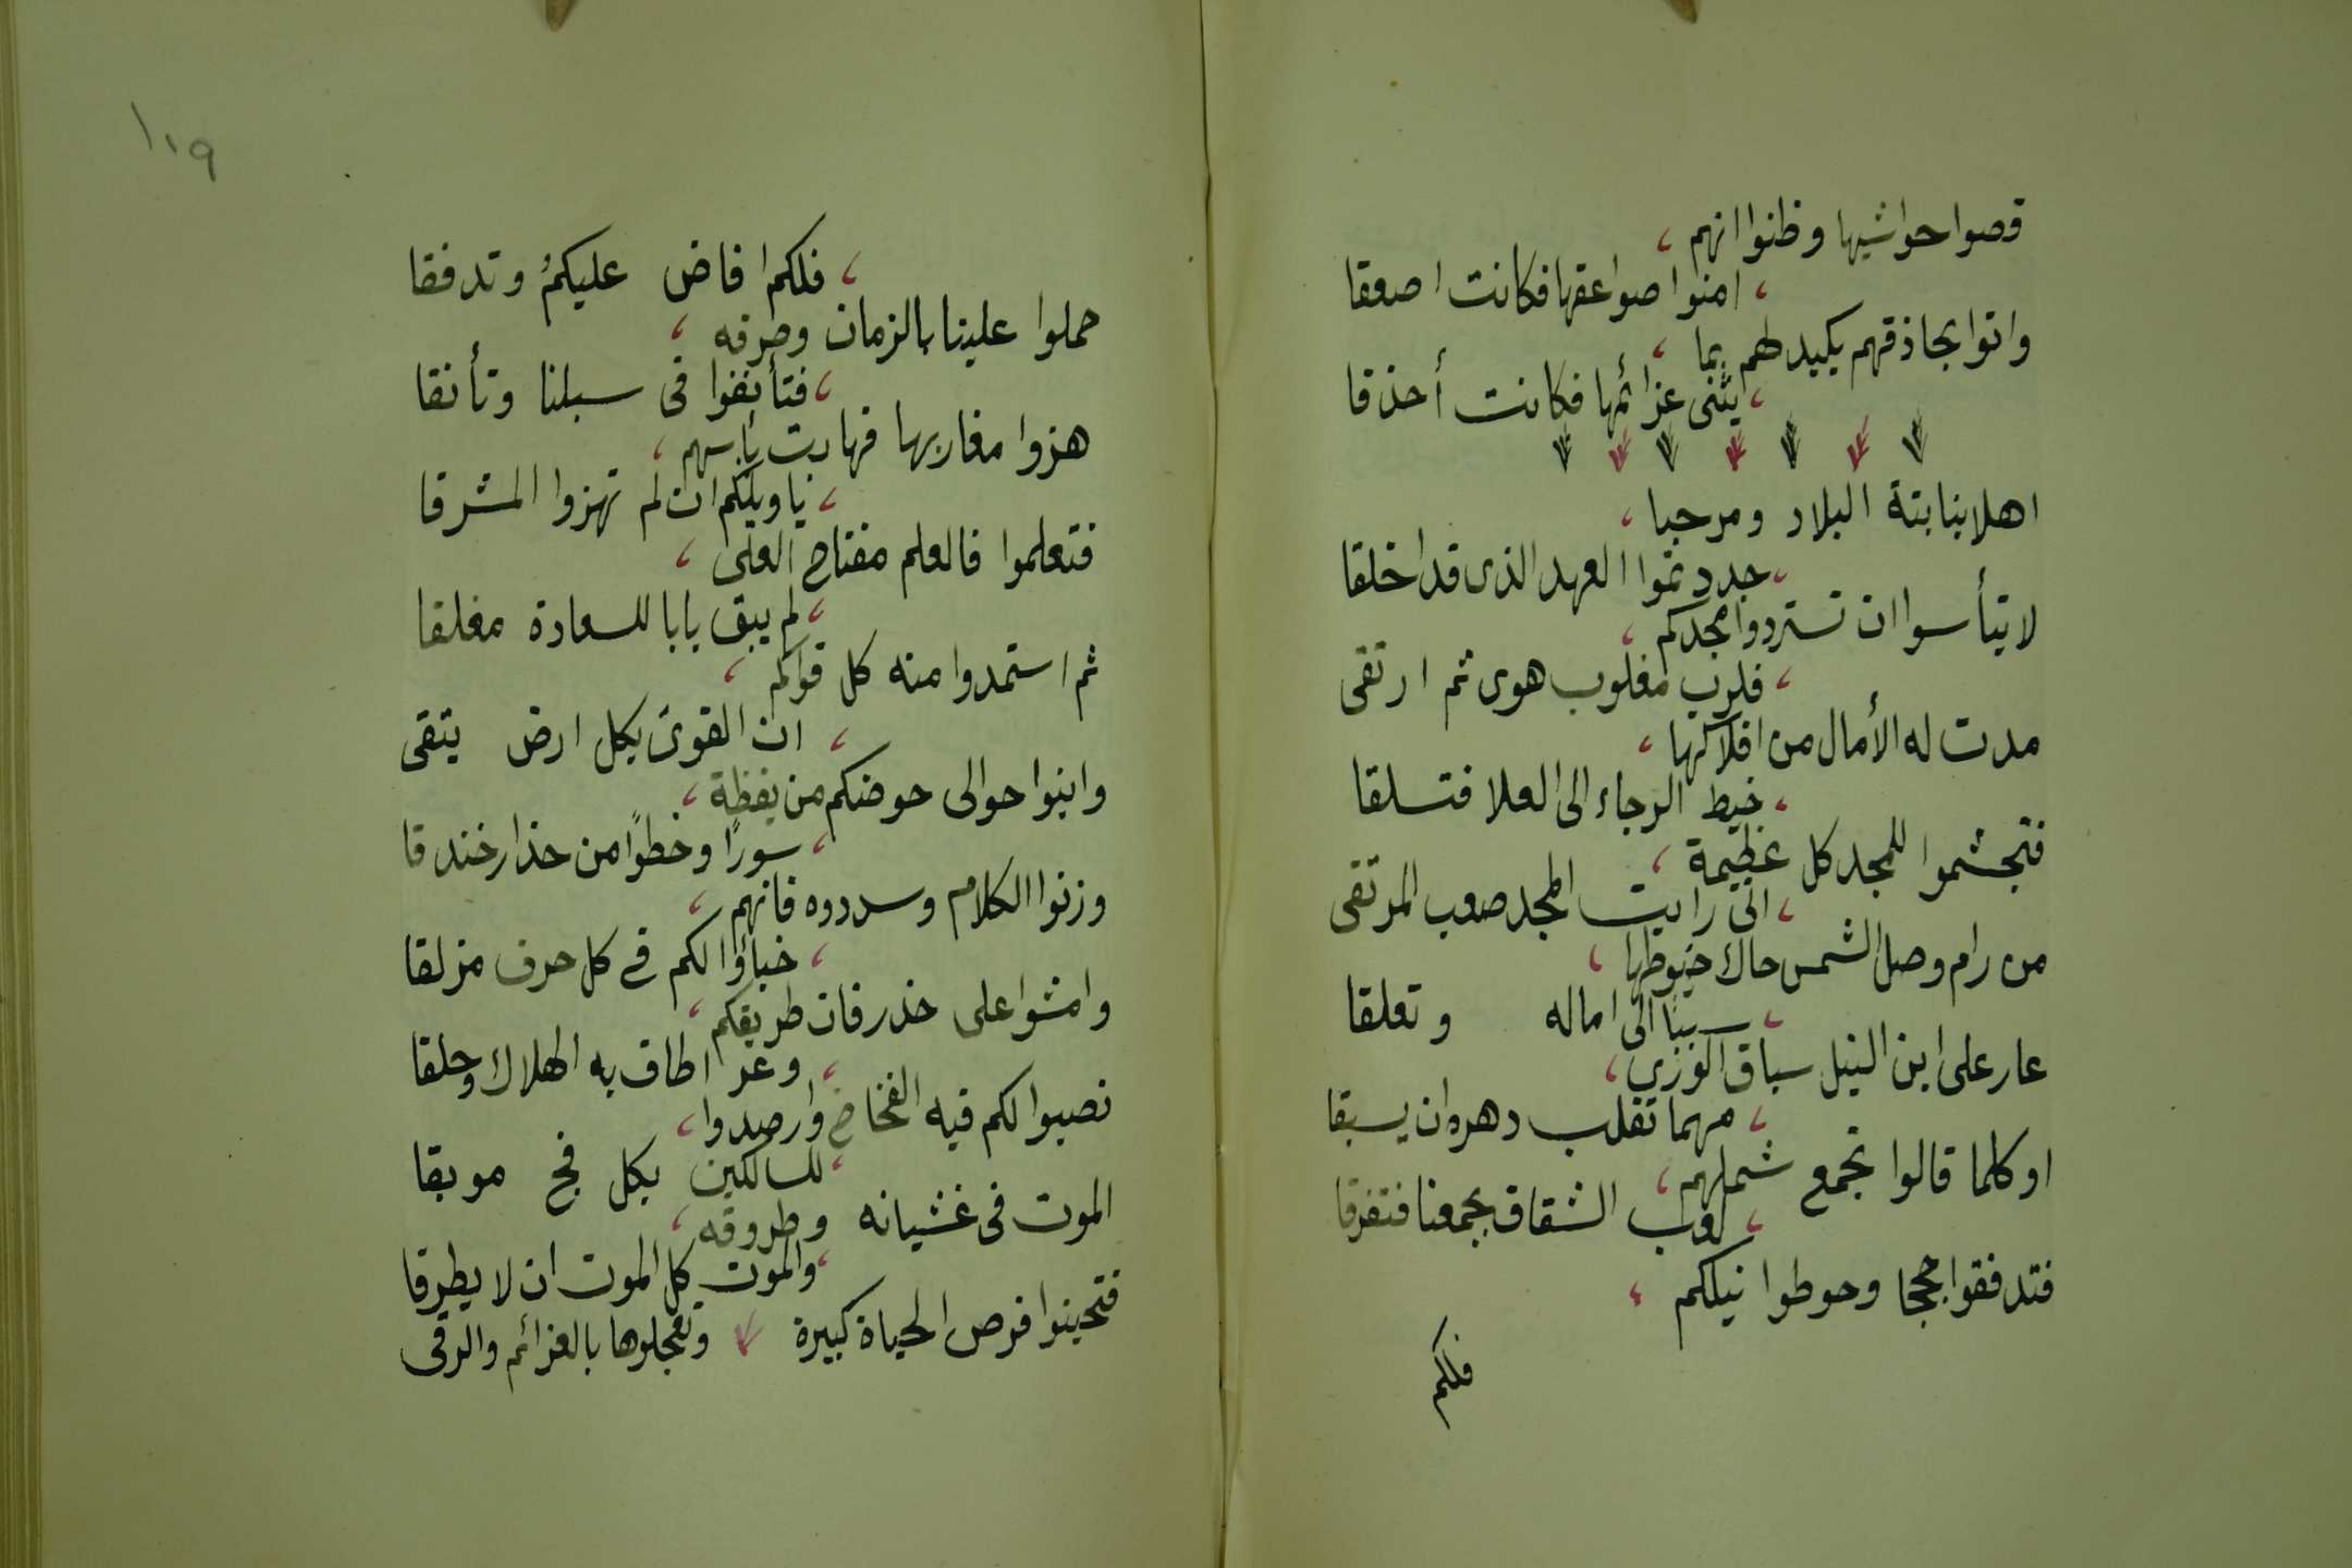 قصوا حواشيها وظنوا انهم ،
، امنوا صواعقها فكانت اصعقا
واتوا بحاذقهم يكيد لهم بما ،
، يثنى عزائمها فكانت أحذقا
اهلا بنابتة البلاد ومرحبا ،
، جددتموا العهد الذى قد اخلقا
لا تيأسوا ان تستردوا مجدكم ،
، فلرب مغلوب هوى ثم ارتقى
مدت له الأمال من افلاكها ،
، خيط الرجاء الى العلا فتسلقا
فتجشموا للمجد كل عظيمة ،
، انى رايت المجد صعب المرتقى
من رام وصل الشمس حاك خيوطها ،
، سببًا الى اماله وتعلقا
عار على ابن النيل سباق الورى ،
، مهما تقلب دهره ان يسبقا
او كلما قالوا تجمع شملهم ،
، لعب الشقاق بجمعنا فتفرقا
فتدفقوا حججا وحوطوا نيلكم ،
فلكم
١١٩
، فلكم افاض عليكمُ وتدفقا
حملوا علينا بالزمان وصرفه ،
، فتأنقوا فى سبلنا وتأنقا
هزوا مغاربها فهابت بأسهم ،
، يا ويلكم ان لم تهزوا المشرقا
فتعلموا فالعلم مفتاح العلى ،
، لم يبق بابا للسعادة مغلقا
ثم استمدوا منه كل قواكم ،
، ان القوى بكل ارض يتقى
وابنوا حوالى حوضكم من يقظة ،
، سورًا وخطوًا من حذار خندقا
وزنوا الكلام وسددوه فانهم ،
، خبأوا لكم فى كل حرف مزلقا
وامشوا على حذر فان طريقكم ،
، وعر اطاف به الهلاك وحلقا
نصبوا لكم فيه الفخاخ وارصدوا ،
، للسالكين بكل فج موبقا
الموت فى غشيانه وطروقه ،
، والموت كل الموت ان لا يطرقا
فتحينوا فرص الحياة كبيرة وتعجلوها بالعزائم والرقى